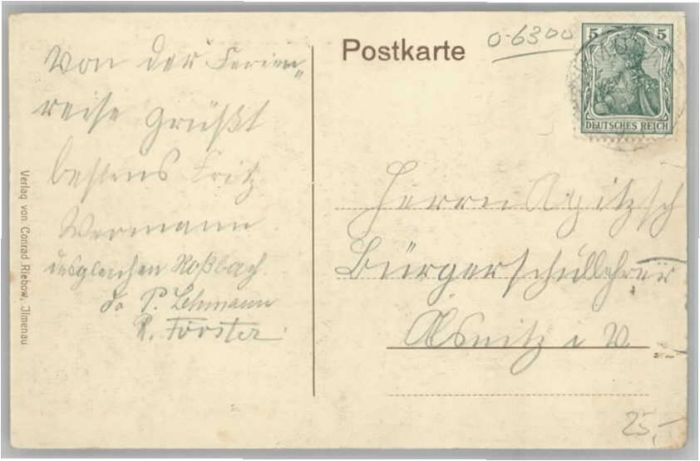 Von der Ferien-
reise grüßt
bestens Fritz
Wermann
desgleichen Roßbach
do P. Lehmann
R. Förster.
Verlag von Conrad Riebow, Jlmenau
Postkarte
0-6300
5 5
DEUTSCHES REICH
Herrn Apitzsch
Bürgerschullehrer
Ölsnitz i V.
25,-